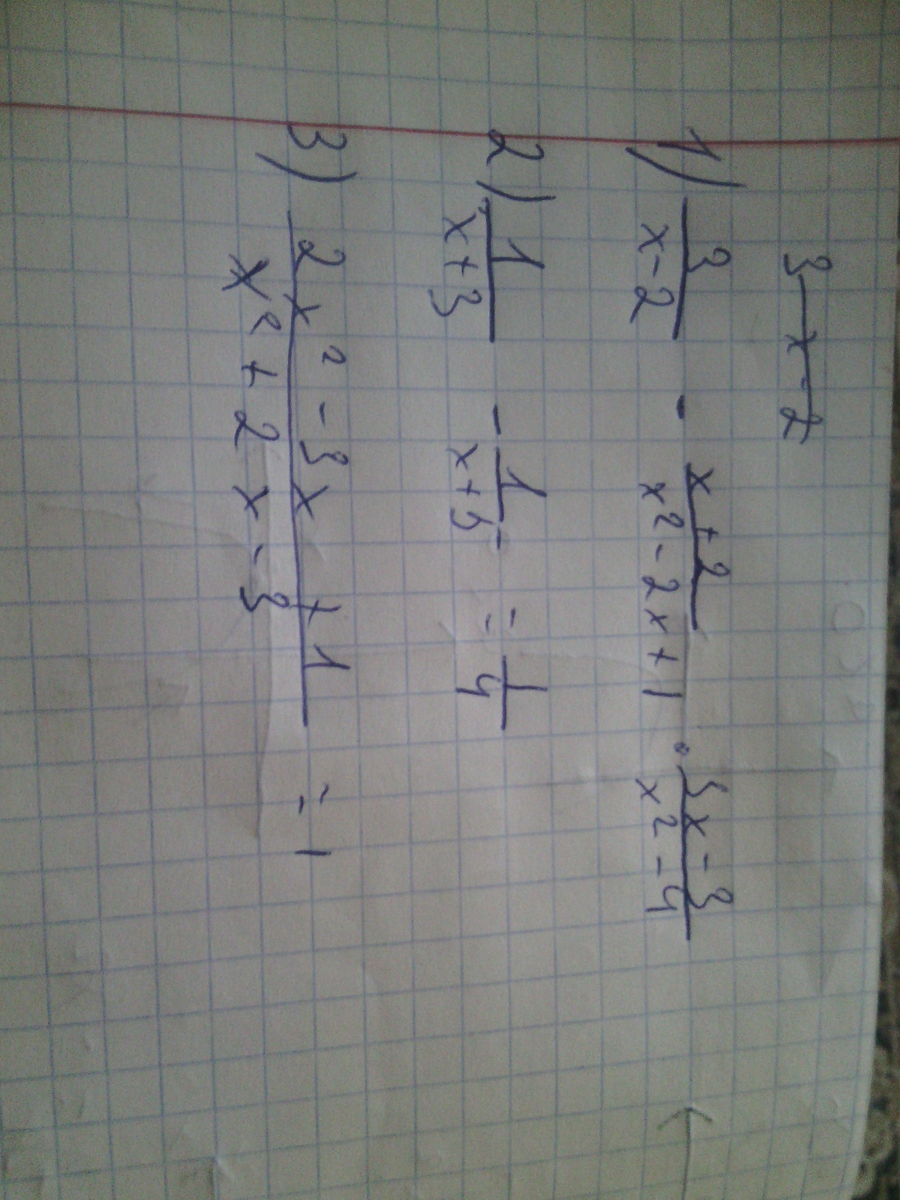 3 x - 2
1) 3/(x-2) - (x+2)/(x²-2x+1) · (3x-3)/(x²-4)
2) 1/(x+3) - 1/(x+5) = 1/4
3) (2x²-3x+1)/(x²+2x-3) = 1